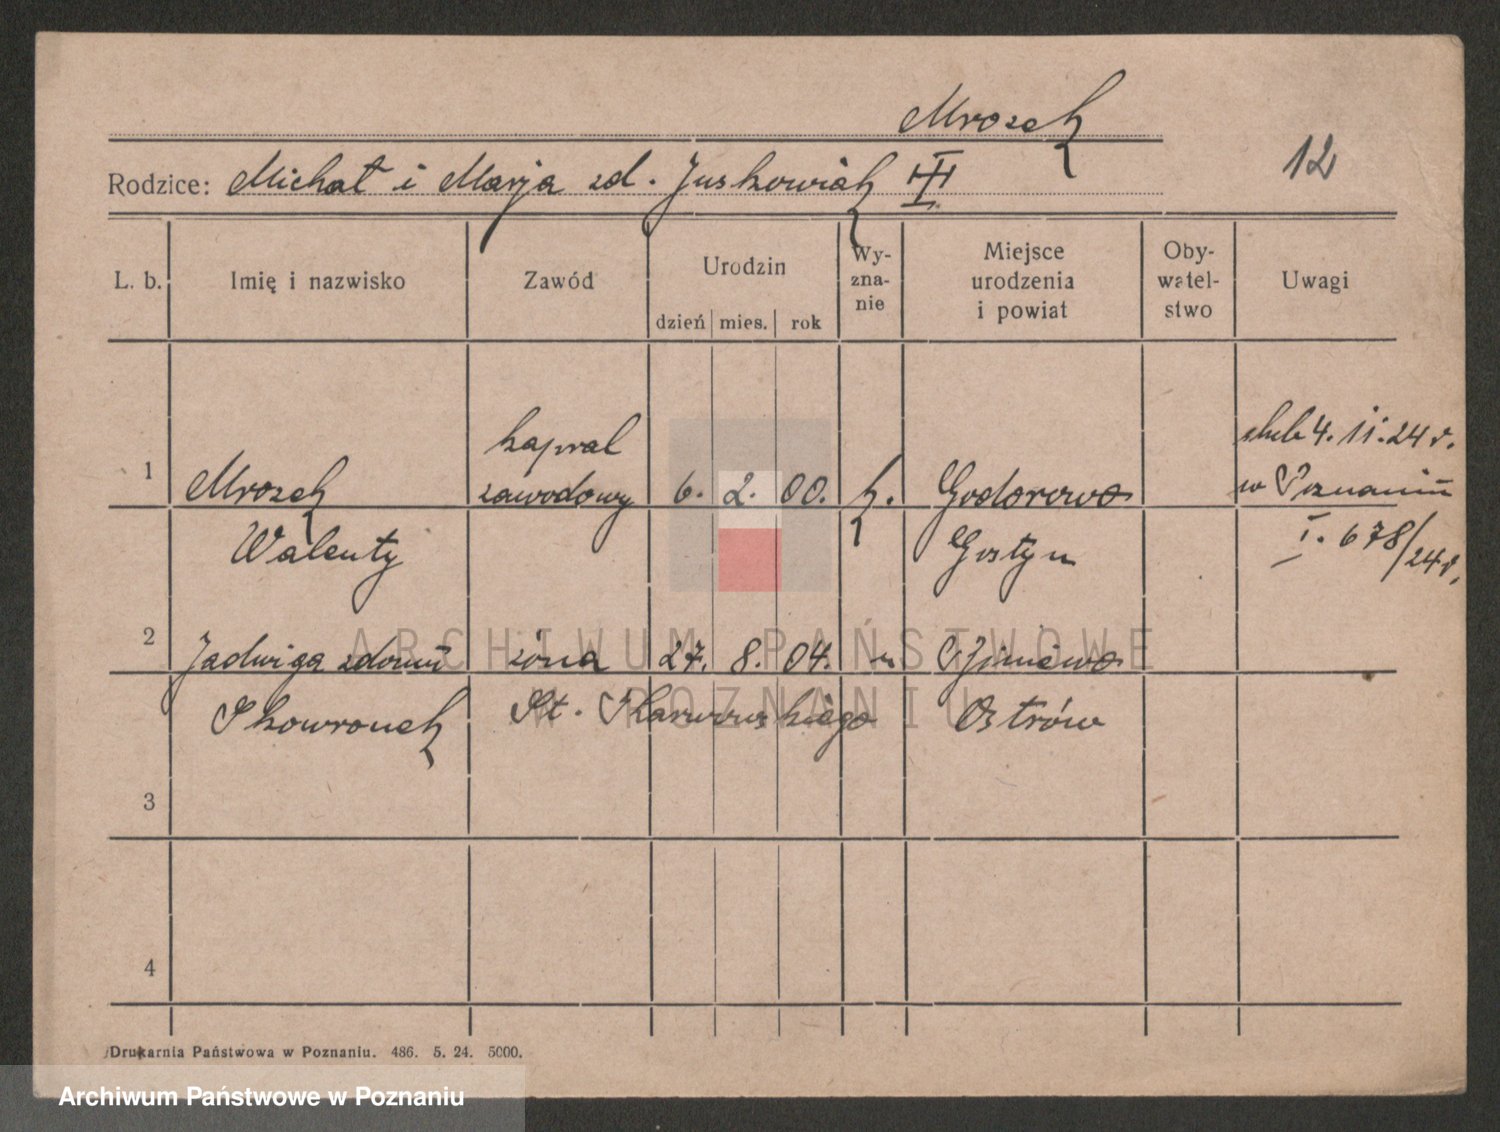 Mrozek
Rodzice: Michał i Marja zd. Juskowiak III
12
L. b. Imię i nazwisko Zawód Urodzin Wy-zna-nie Miejsce urodzenia i powiat Oby-watel-stwo Uwagi
dzień mies. rok
kapral ślub 4. 11. 24 r.
1 Mrozek zawodowy 6. 2. 00. k. Godorowo w Poznaniu
Walenty Gostyn I. 678/24 r.
2 Jadwiga zdomu żona 27. 8. 04. "
Skowronek St. Ostrów
3
4
Drukarnia Państwowa w Poznaniu. 486. 5. 24. 5000.
ARCHIWUM PAŃSTWOWE
W POZNANIU
Archiwum Państwowe w Poznaniu